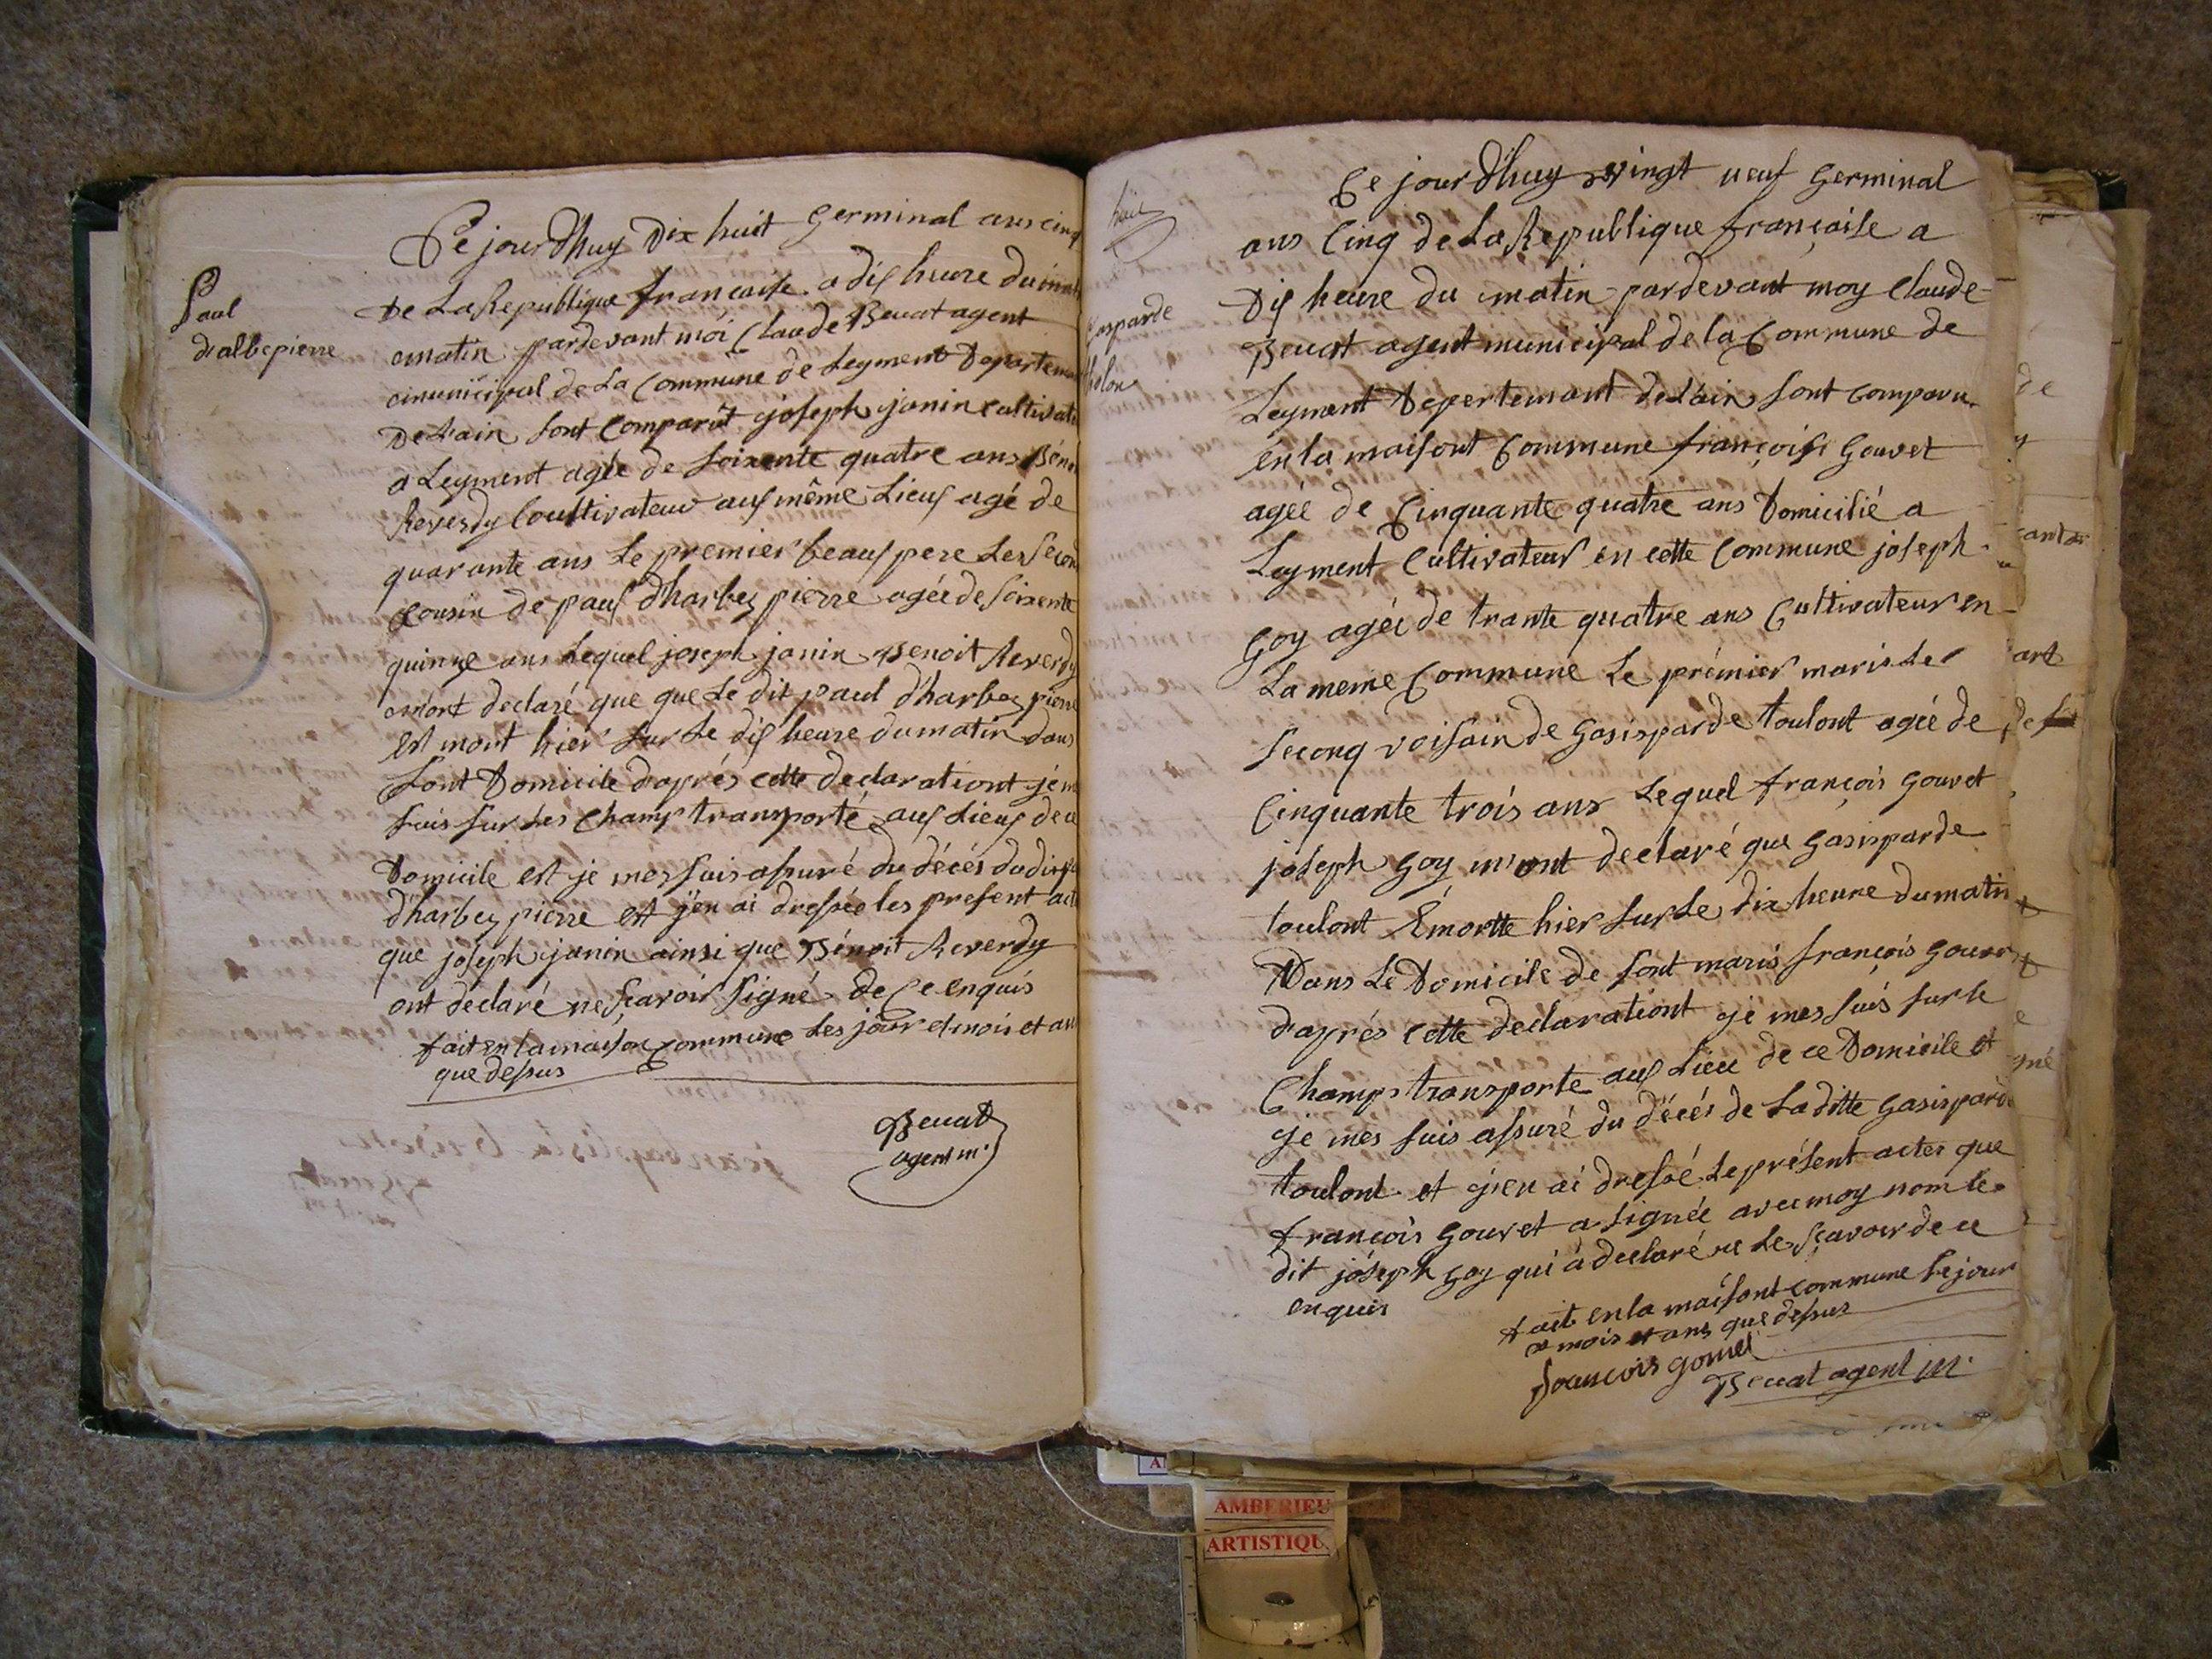 Paul
dalbepierre
Ce jourdhuy Dix huit Germinal ans cinq
De La Republique francaise a dis heure du
matin pardevant moi Claude Beuat agent
municipal de La Commune de Leyment Departem
De Lain sont Comparût joseph janin cultivat
a Leyment agée de soixente quatre ans Béno
Reverdy Coultivateur aus même Lieus agé de
quarante ans Le premier beaus pere Les secon
cousin de paul dharbey pierre agée de soixente
quinze ans Lequel joseph janin Benoit Reverdy
m'ont declaré que que Le dit paul dharbey pierre
est mort hier sur Le dis heure du matin dans
sont Domicile daprés cette declarationt je m
suis sur Les Champ transporté aus Lieus de ce
Domicile est je mes suis assuré du décés dudit
dharbey pierre est j'en ai dressée les present acte
que joseph janin ainsi que Bénoit Reverdy
ont declaré ne sçavoir signé de Ce enquis
fait en la maison Commune Les jour et mois et an
que dessus
Beuat
agent m.
Gasparde
tholon
Ce jourdhuy vingt neuf Germinal
ans Cinq de La Republique françaîse a
Dis heure du matin pardevant moy Claude
Beuat agent municipal de la Commune de
Leyment Departemant de Lain sont comparu
en la maisont Commune françois Gouvet
agée de Cinquante quatre ans Domicilié a
Leyment Cultivateur en cette Commune joseph
Goy agée de trante quatre ans Cultivateur en
La meme Commune Le prémier maris Le
seconq voisain de Gasisparde toulont agée de
Cinquante trois ans Lequel françois Gouvet
joseph Goy m'ont declaré que Gasisparde
toulont É mortte hier sur Le dix heure du matin
Dans Le Domicile de sont maris françois Gouvet
d'aprés cette declarationt je mes suis sur le
Champs transporte aus Lieu de ce Domicile et
je mes suis assuré du décés de La ditte Gasisparde
toulont et j'en ai dressé Le présent actes que
françois Gouvet a signée avec moy nom le
dit joseph Goy qui à declaré ne Le sçavoir de ce
enquis
fait en la maisont Commune Le jour
mois et ans que dessus
françois gouvet
Beuat agent m.
AMBERIEU
ARTISTIQU